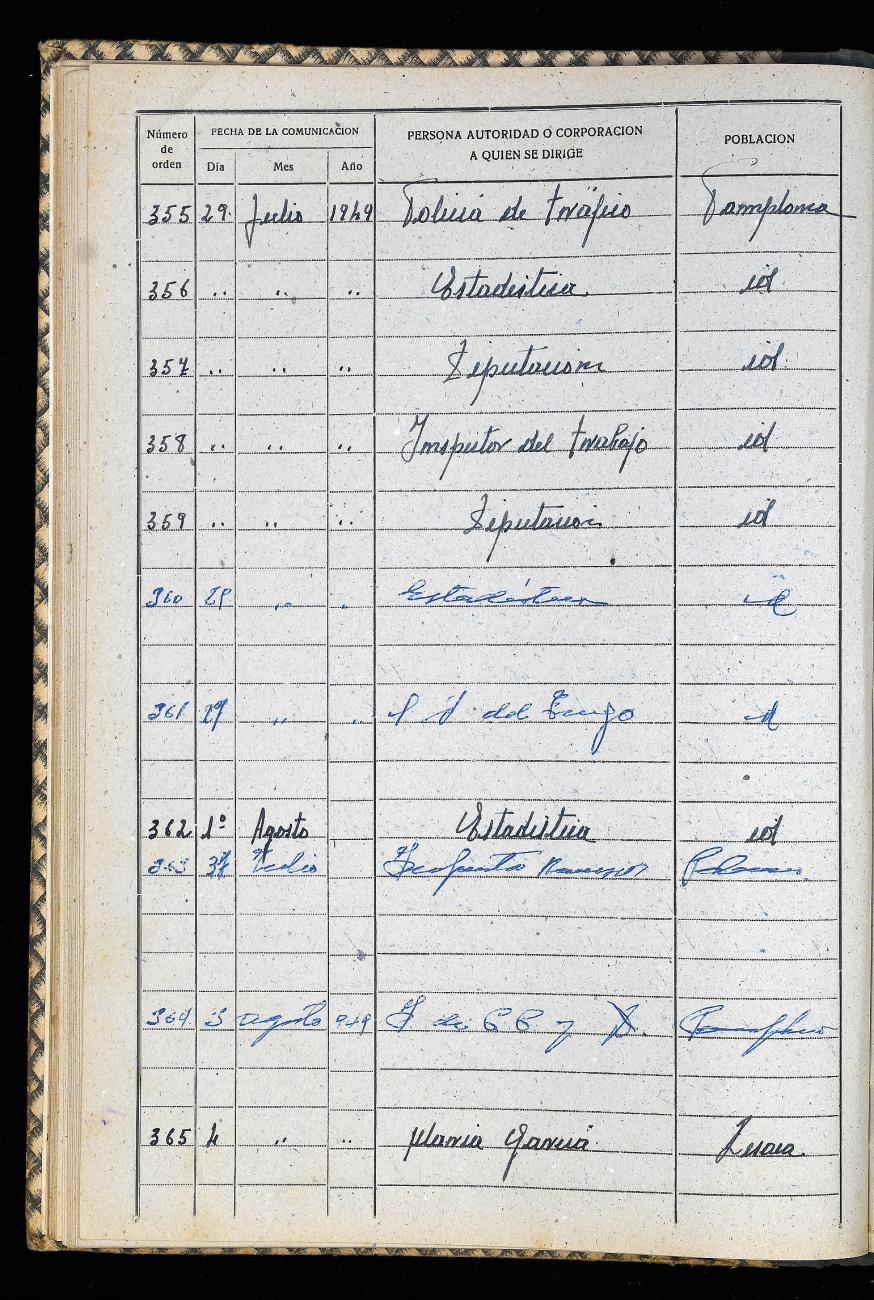 Número de orden FECHA DE LA COMUNICACION PERSONA AUTORIDAD O CORPORACION A QUIEN SE DIRIGE POBLACION
Día Mes Año
355 29 Julio 1949 Policia de tráfico Pamplona
356 ,, ,, ,, Estadistica id
357 ,, ,, ,, Diputacion id
358 ,, ,, ,, Inspector del trabajo id
359 ,, ,, ,, Diputacion id
360 29 ,, ,, Estadística id
361 29 ,, ,, S N del Trigo id
362 1º Agosto Estadistica id
363 Julio
364 3 agosto 949 de Pamplona
365 4 ,, ,, Maria Garcia